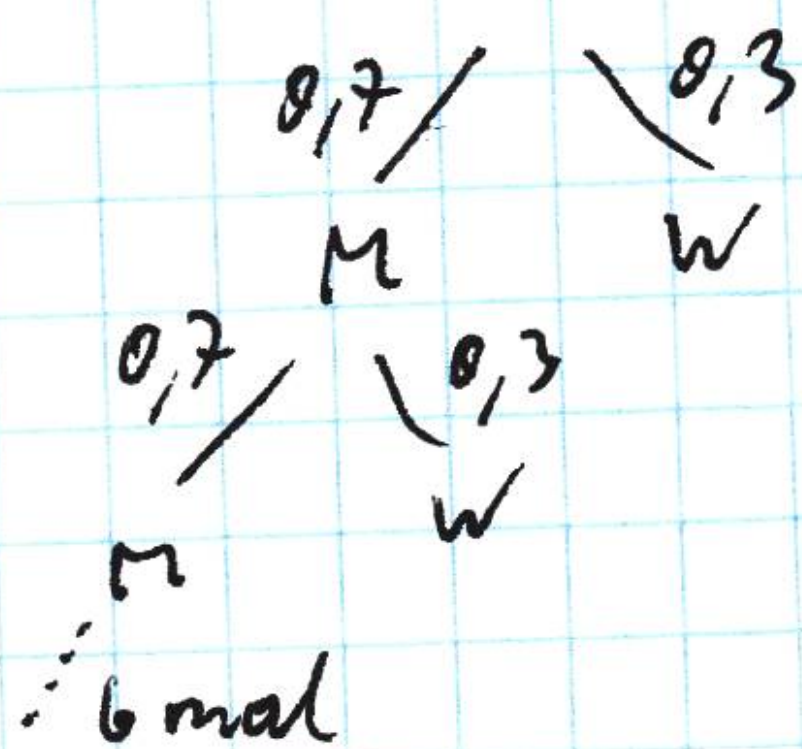 0,7 0,3
M W
0,7 0,3
M W
6 mal